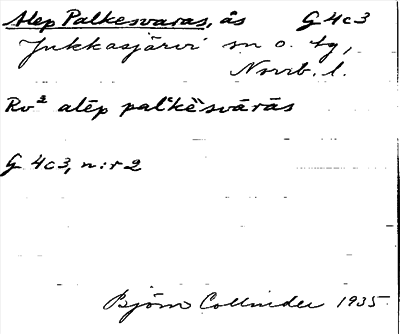 Alep Palkesvaras, ås G 4c3
Jukkasjärvi sn o. tg,
Norrb. l.
Rv² alēp palˈkĕsvārās
G 4c3, n:r 2
Björn Collinder 1935